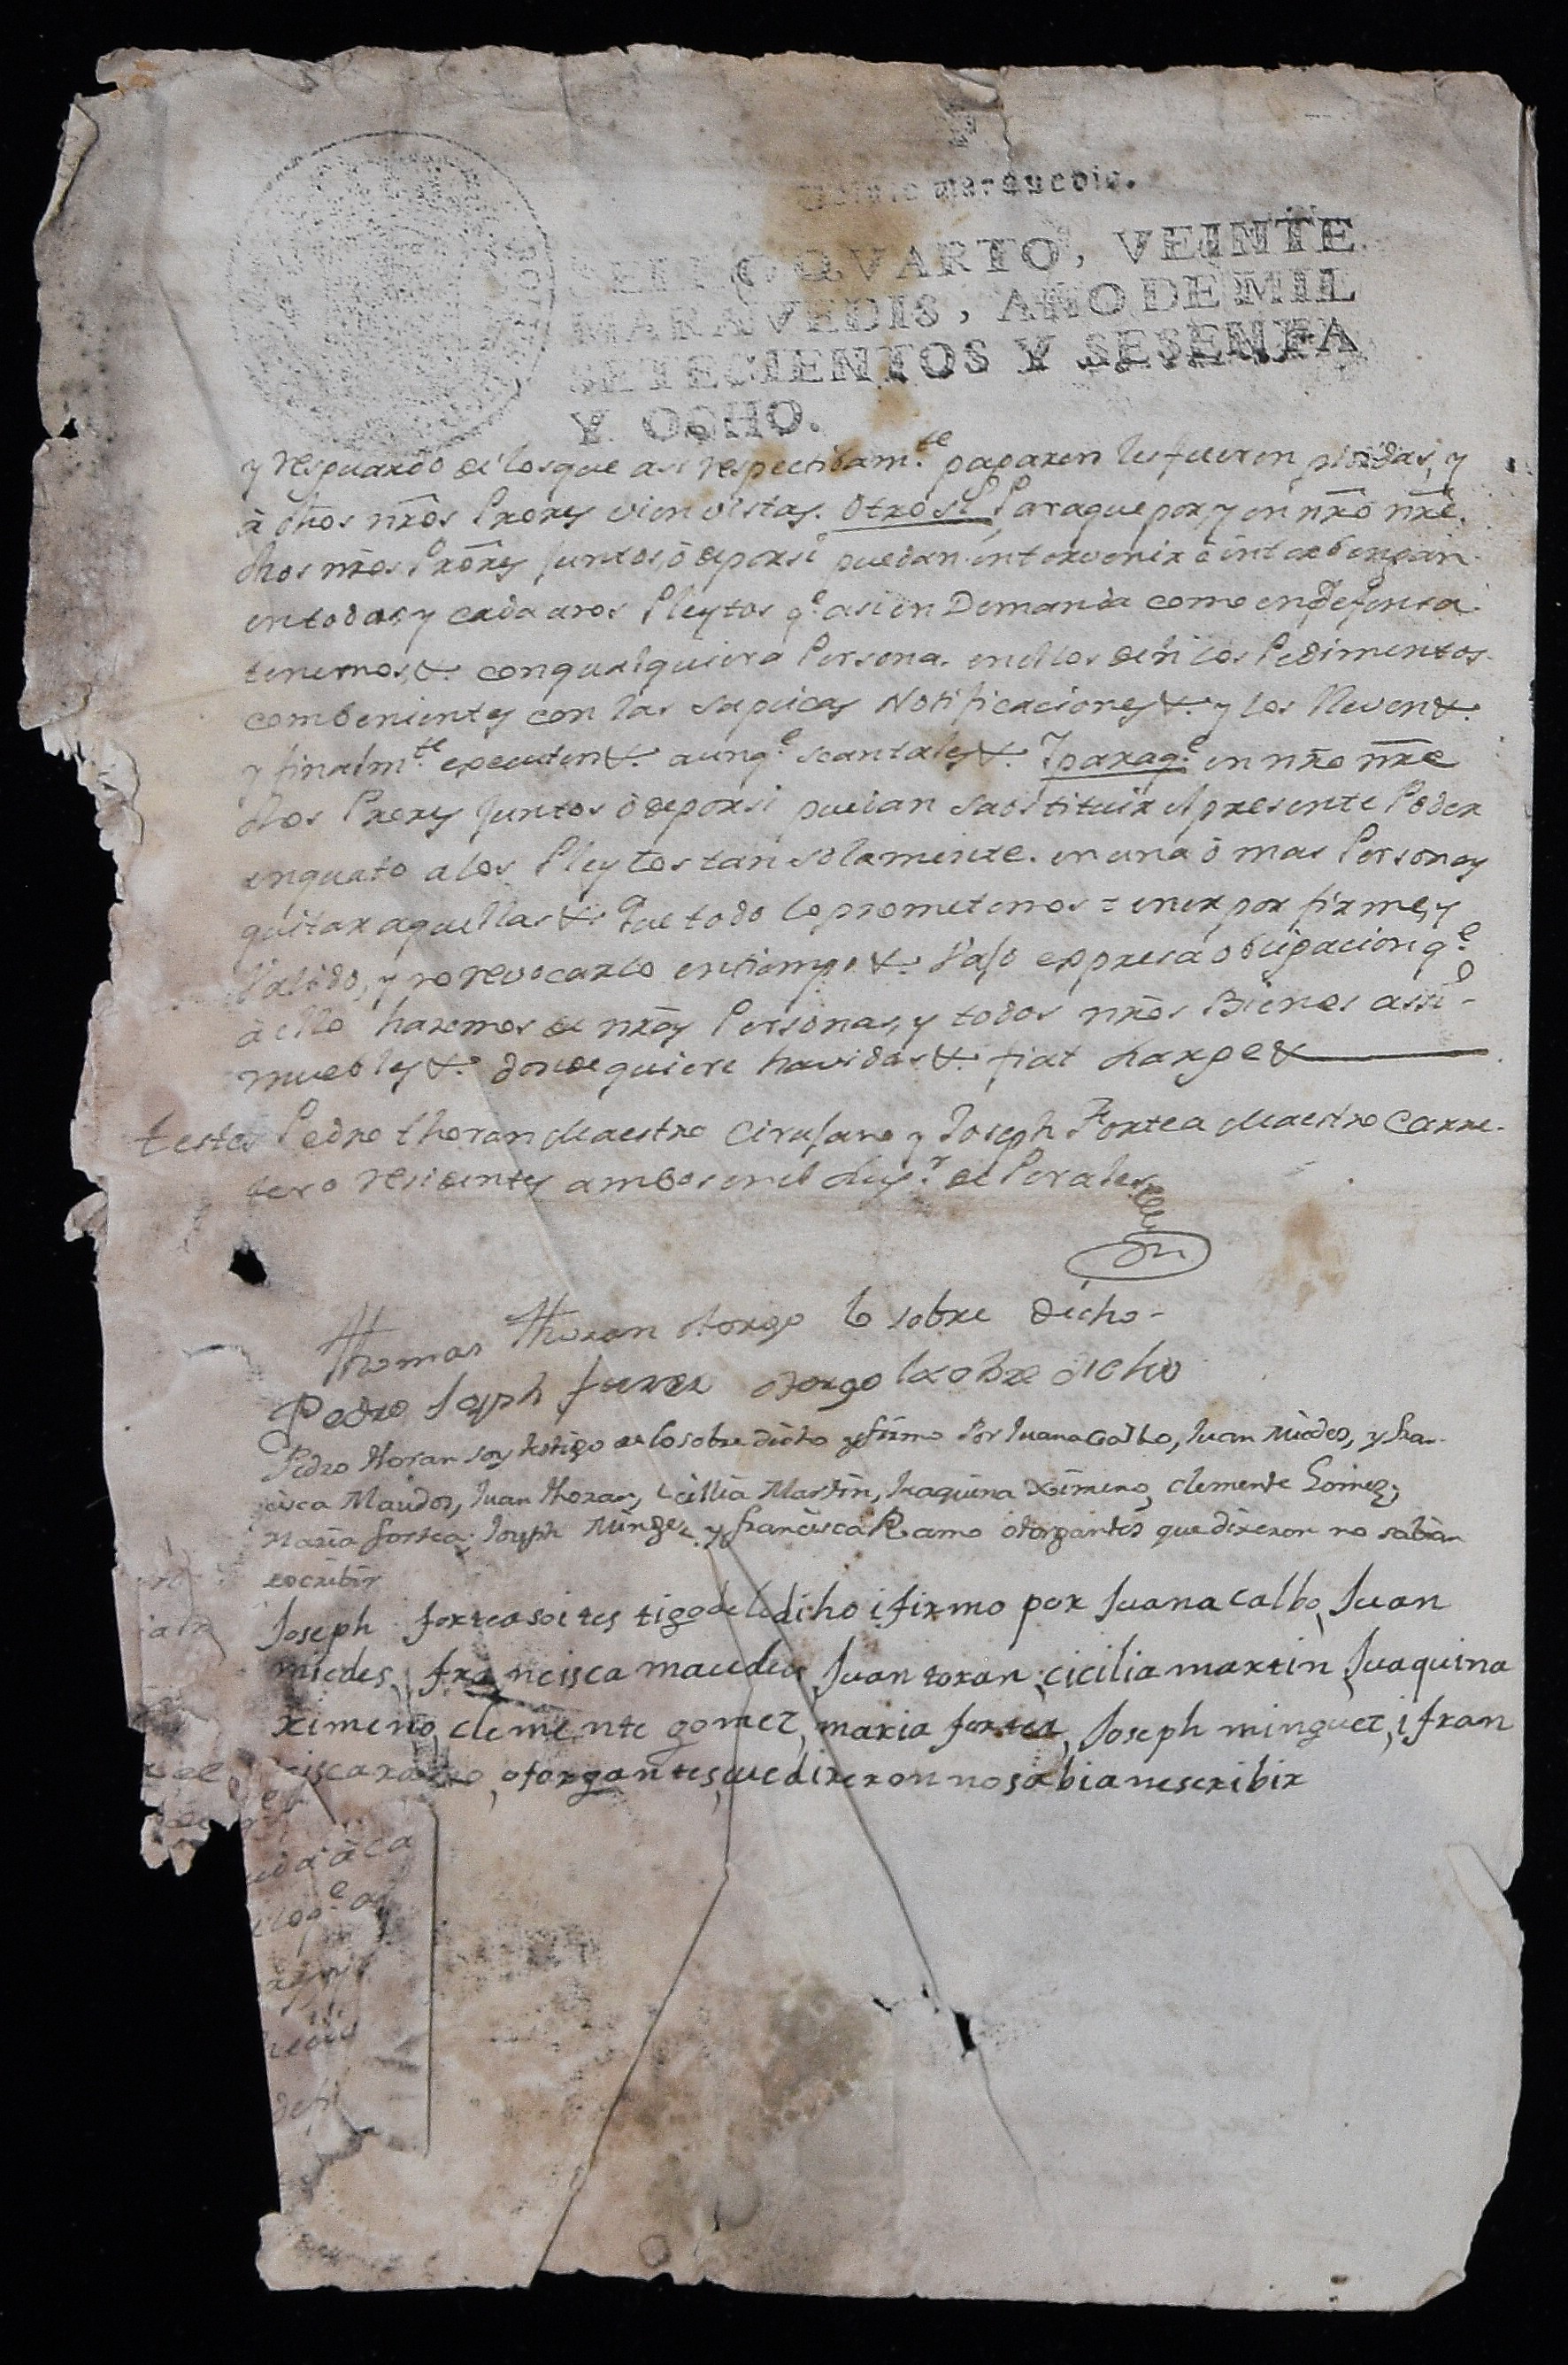 Veinte maravedis.
SELLO QVARTO, VEINTE
MARAVEDIS, AÑO DE MIL
SETECIENTOS Y SESENTA
Y OCHO.
y resguardo de los que asi respectibam.te pagaren les fueren pididas, y
à dhos nr̃os Prores vien vistas. Otro si Paraque por, y en nr̃o nr̃e.
dhos nr̃os Prores juntos, ò de por si puedan intervenir è interbengan
en todos, y cada unos Pleytos q.e asi en Demanda como en Defensa
tenemos, &. con qualquiera Persona. en ellos den los Pedimentos
combenientes con las suplicas Notificaciones &. y los lleven &.
y finalm.te executen &. aunq.e sean tales &. Y paraq.e en nr̃o nr̃e
dhos Prores juntos ò de por si puedan substituir el presente Poder
en quato a los Pleytos tan solamente. en una ò mas Personas
quitar aquellas &. Que todo lo prometemos tener por firme, y
Valido, y no revocarlo en tiempo &. vajo expresa obligacion q.e
à ello hazemos de nr̃as Personas, y todos nr̃os Bienes assi
muebles &. donde quiere havidos &. fiat large &
testes Pedro thoran Maestro Cirujano y Joseph Fortea Maestro Carre-
tero residentes ambos en el Lug.r de Perales
Thomas Thoran otorgo lo sobre dicho-
Pedro Joseph ferrer otorgo lo sobre dicho
Pedro thoran soy testigo de lo sobre dicho y firmo Por Juana Calbo, Juan Miedes, y fran-
cisca Maudos, Juan thoran, Cicilia Martin, Juaquina Ximeno, Clemente Gomez,
Maria fortea, Joseph Minguez y francisca Ramo otorgantes que dixeron no sabian
escribir
Joseph fortea soi tes tigo de lo diho i firmo por Juana calbo, Juan
miedes, francisca maudos Juan toran, cicilia martin, Juaquina
ximeno, clemente gomez, maria fortea, Joseph minguez, i fran
cisca ramo, otorgantes, que dixeron no sabian escribir